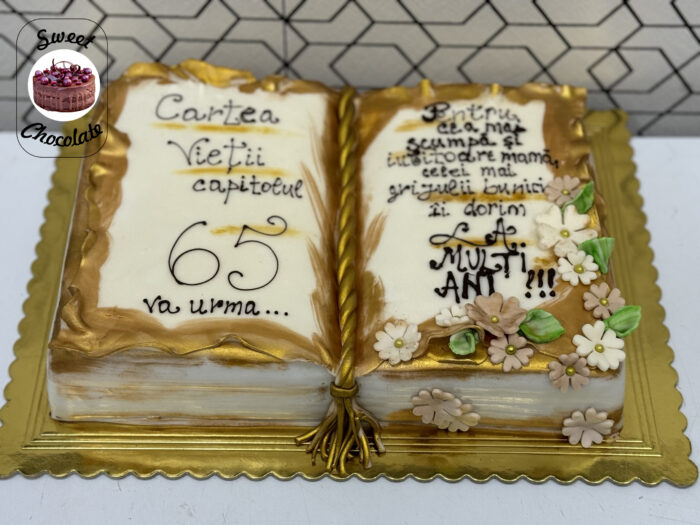 Sweet
Chocolate
Cartea
Vieții
capitolul
65
va urma...
Pentru
cea mai
scumpă și
iubitoare mamă,
celei mai
grijulii bunici
îi dorim
LA
MULȚI
ANI !!!